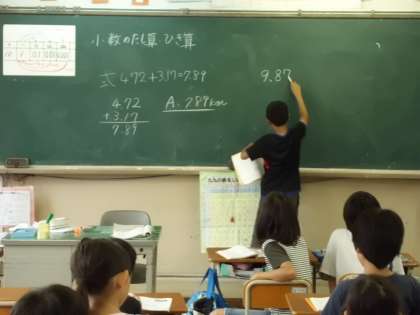 小数のたし算 ひき算
式 4.72+3.17=7.89
4.72
+3.17
7.89
A. 7.89km
9.87